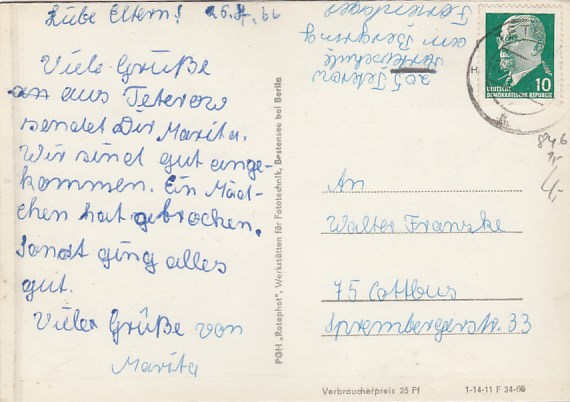 Liebe Eltern! 26.7.66
Viele Grüße
an aus Teterow
sendet Dir Marita.
Wir sind gut ange-
kommen. Ein Mäd-
chen hat gebrochen.
Sonst ging alles
gut.
Viele Grüße von
Marita
205 Teterow
am Bergring
Ferienlager
10
DEUTSCHE
DEMOKRATISCHE REPUBLIK
An
Walter Franzke
75 Cottbus
Sprembergerstr. 33
PGH „Rotophot“, Werkstätten für Fototechnik, Bestensee bei Berlin
Verbraucherpreis 25 Pf
1-14-11 F 34-66